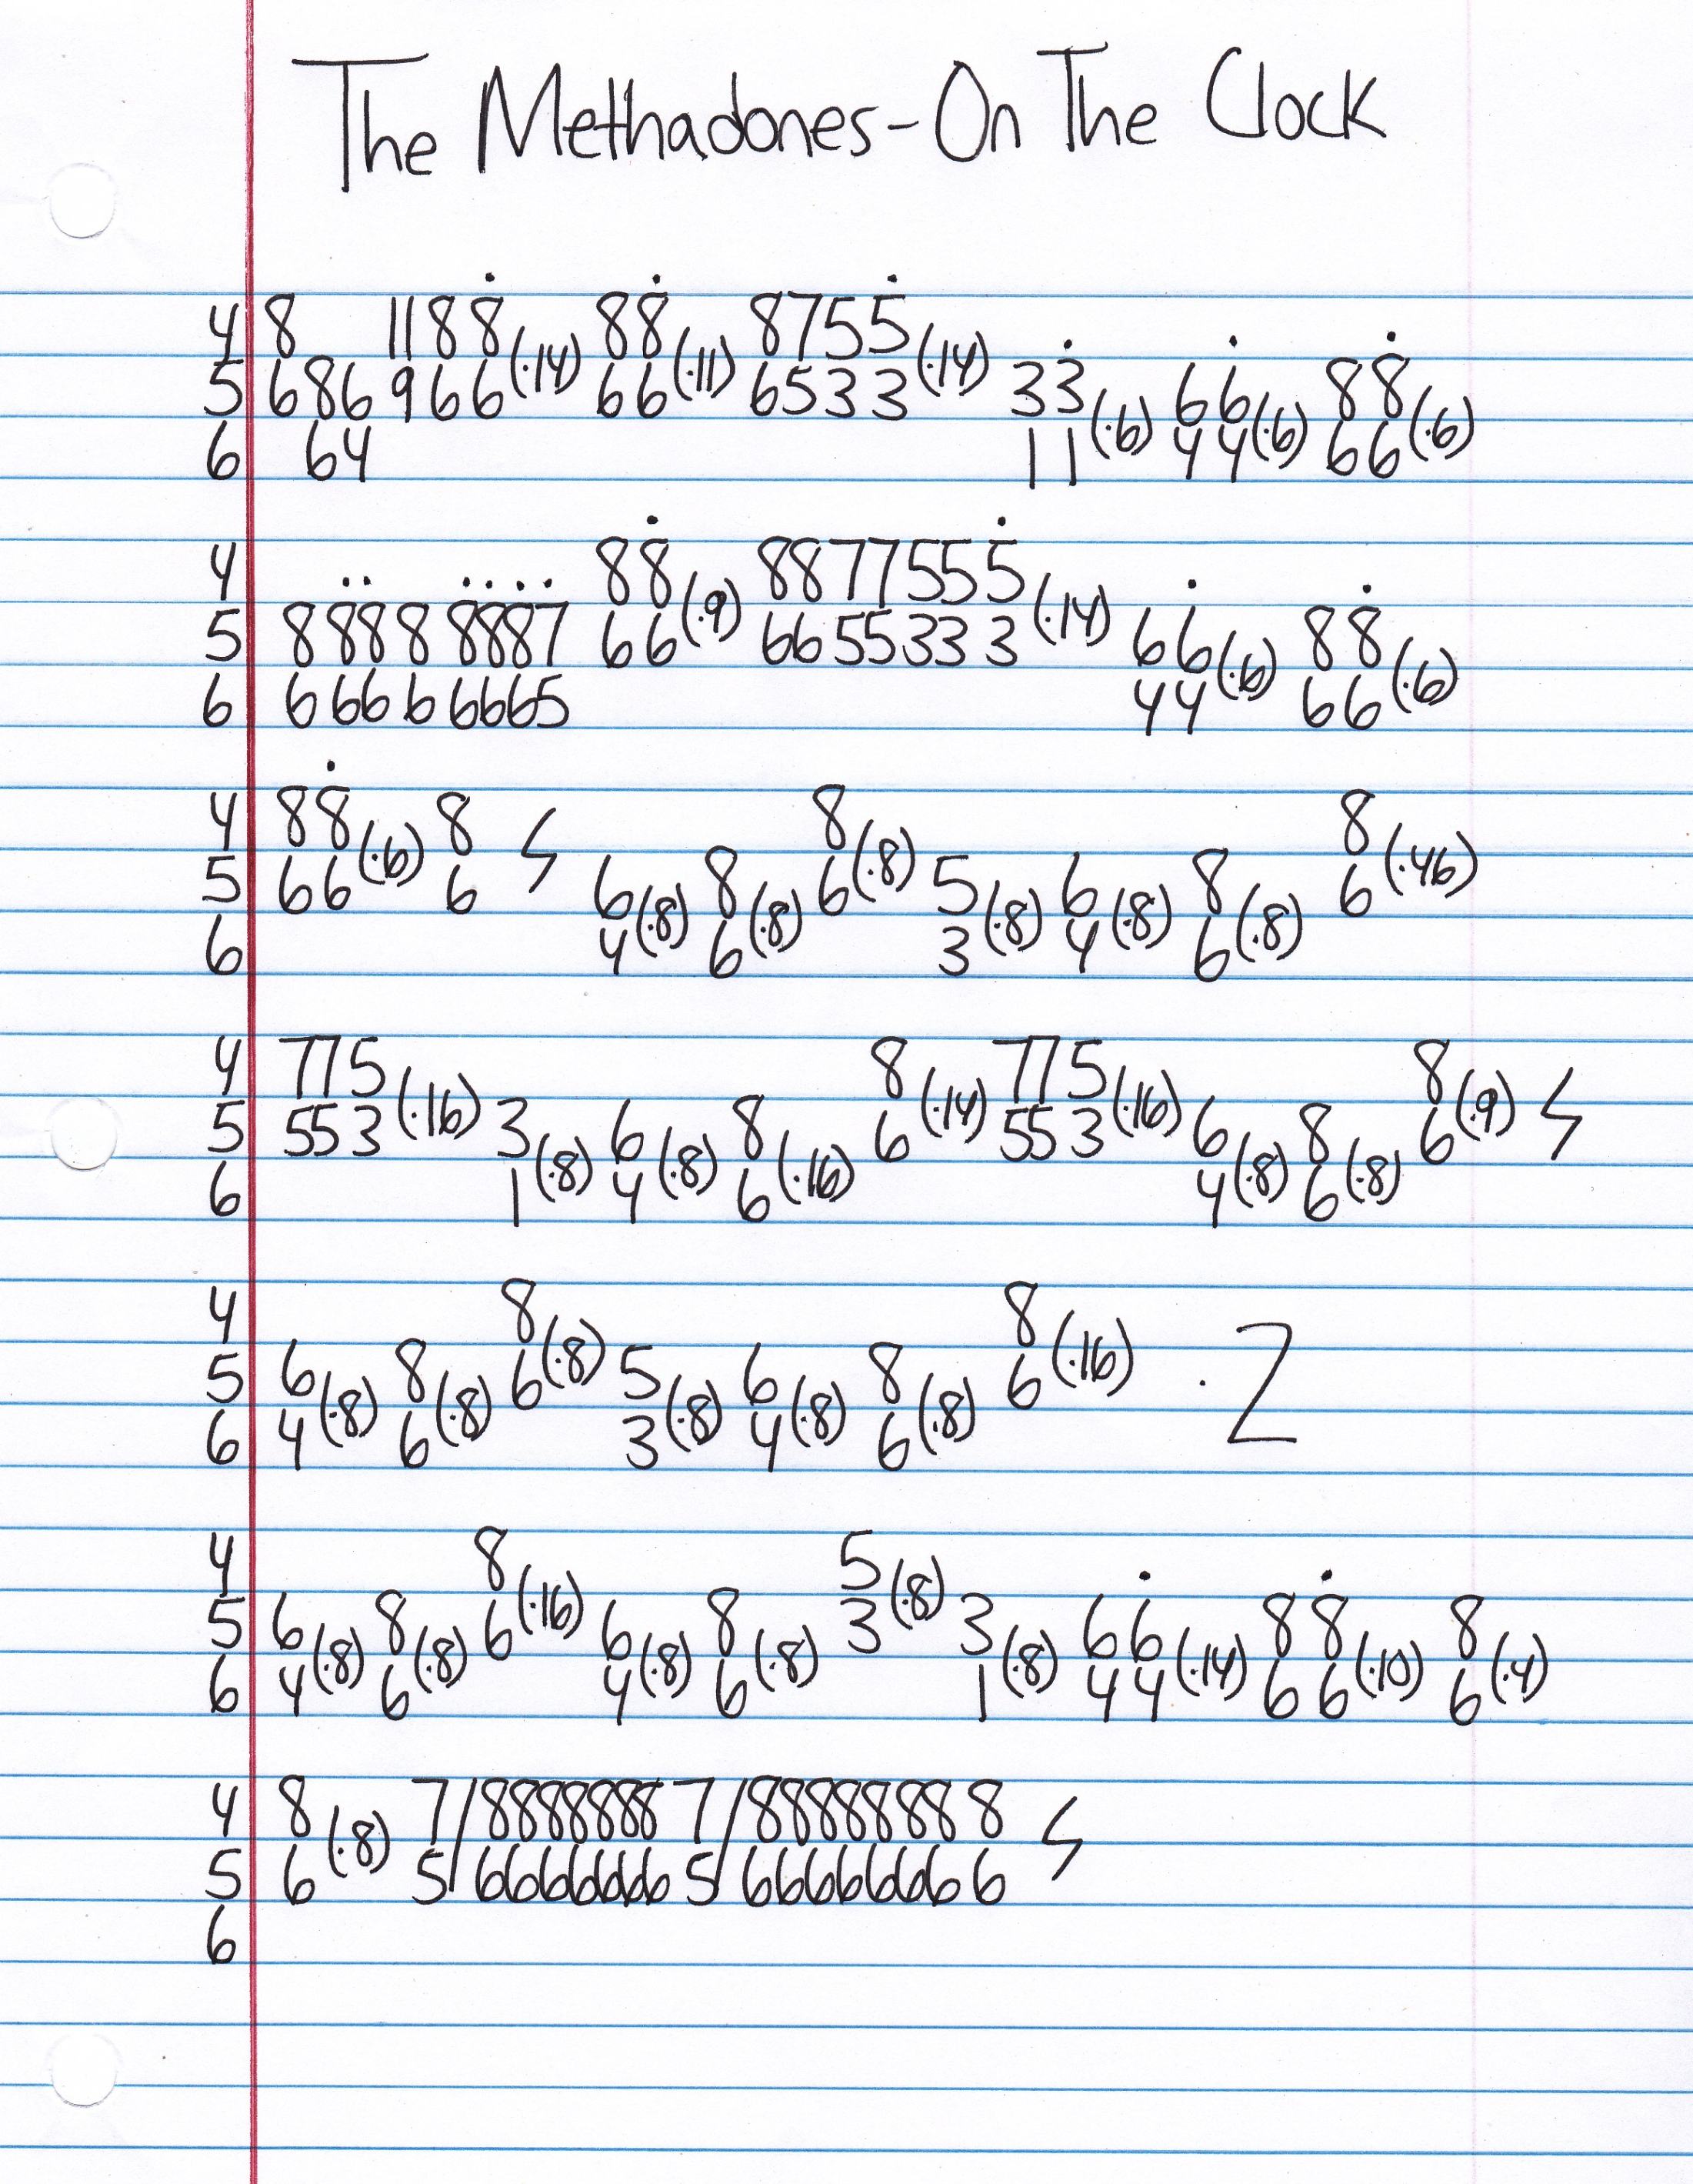 The Methadones-On The Clock
4 8 11 8 8̇ (·14) 8 8̇ (·11) 8 7 5 5̇ (·14)
5 6 8 6 9 6 6 6 6 6 5 3 3 3 3̇ (·6) 6 6̇ (·6) 8 8̇ (·6)
6 6 4 1 1 4 4 6 6
4 8 8̇ (·9) 8 8 7 7 5 5 5̇ (·14)
5 8 8̇ 8̇ 8 8̇ 8̇ 8̇ 7̇ 6 6 6 6 5 5 3 3 3 6 6̇ (·6) 8 8̇ (·6)
6 6 6 6 6 6 6 6 5 4 4 6 6
4 8 8̇ (·6) 8 8 (·8) 8 (·46)
5 6 6 6 6 (·8) 8 (·8) 6 5 (·8) 6 (·8) 8 (·8) 6
6 4 6 3 4 6
4 7 7 5 (·16) 8 (·14) 7 7 5 (·16) 8 (·9)
5 5 5 3 3 (·8) 6 (·8) 8 (·16) 6 5 5 3 6 (·8) 8 (·8) 6
6 1 4 6 4 6
4 8 (·8) 8 (·16)
5 6 (·8) 8 (·8) 6 5 (·8) 6 (·8) 8 (·8) 6 · Z
6 4 6 3 4 6
4 8 (·16) 5 (·8)
5 6 (·8) 8 (·8) 6 6 (·8) 8 (·8) 3 3 (·8) 6 6̇ (·14) 8 8̇ (·10) 8 (·4)
6 4 6 4 6 1 4 4 6 6 6
4 8 (·8) 7/8 8 8 8 8 8 8 7/8 8 8 8 8 8 8 8
5 6 5/6 6 6 6 6 6 6 5/6 6 6 6 6 6 6 6
6